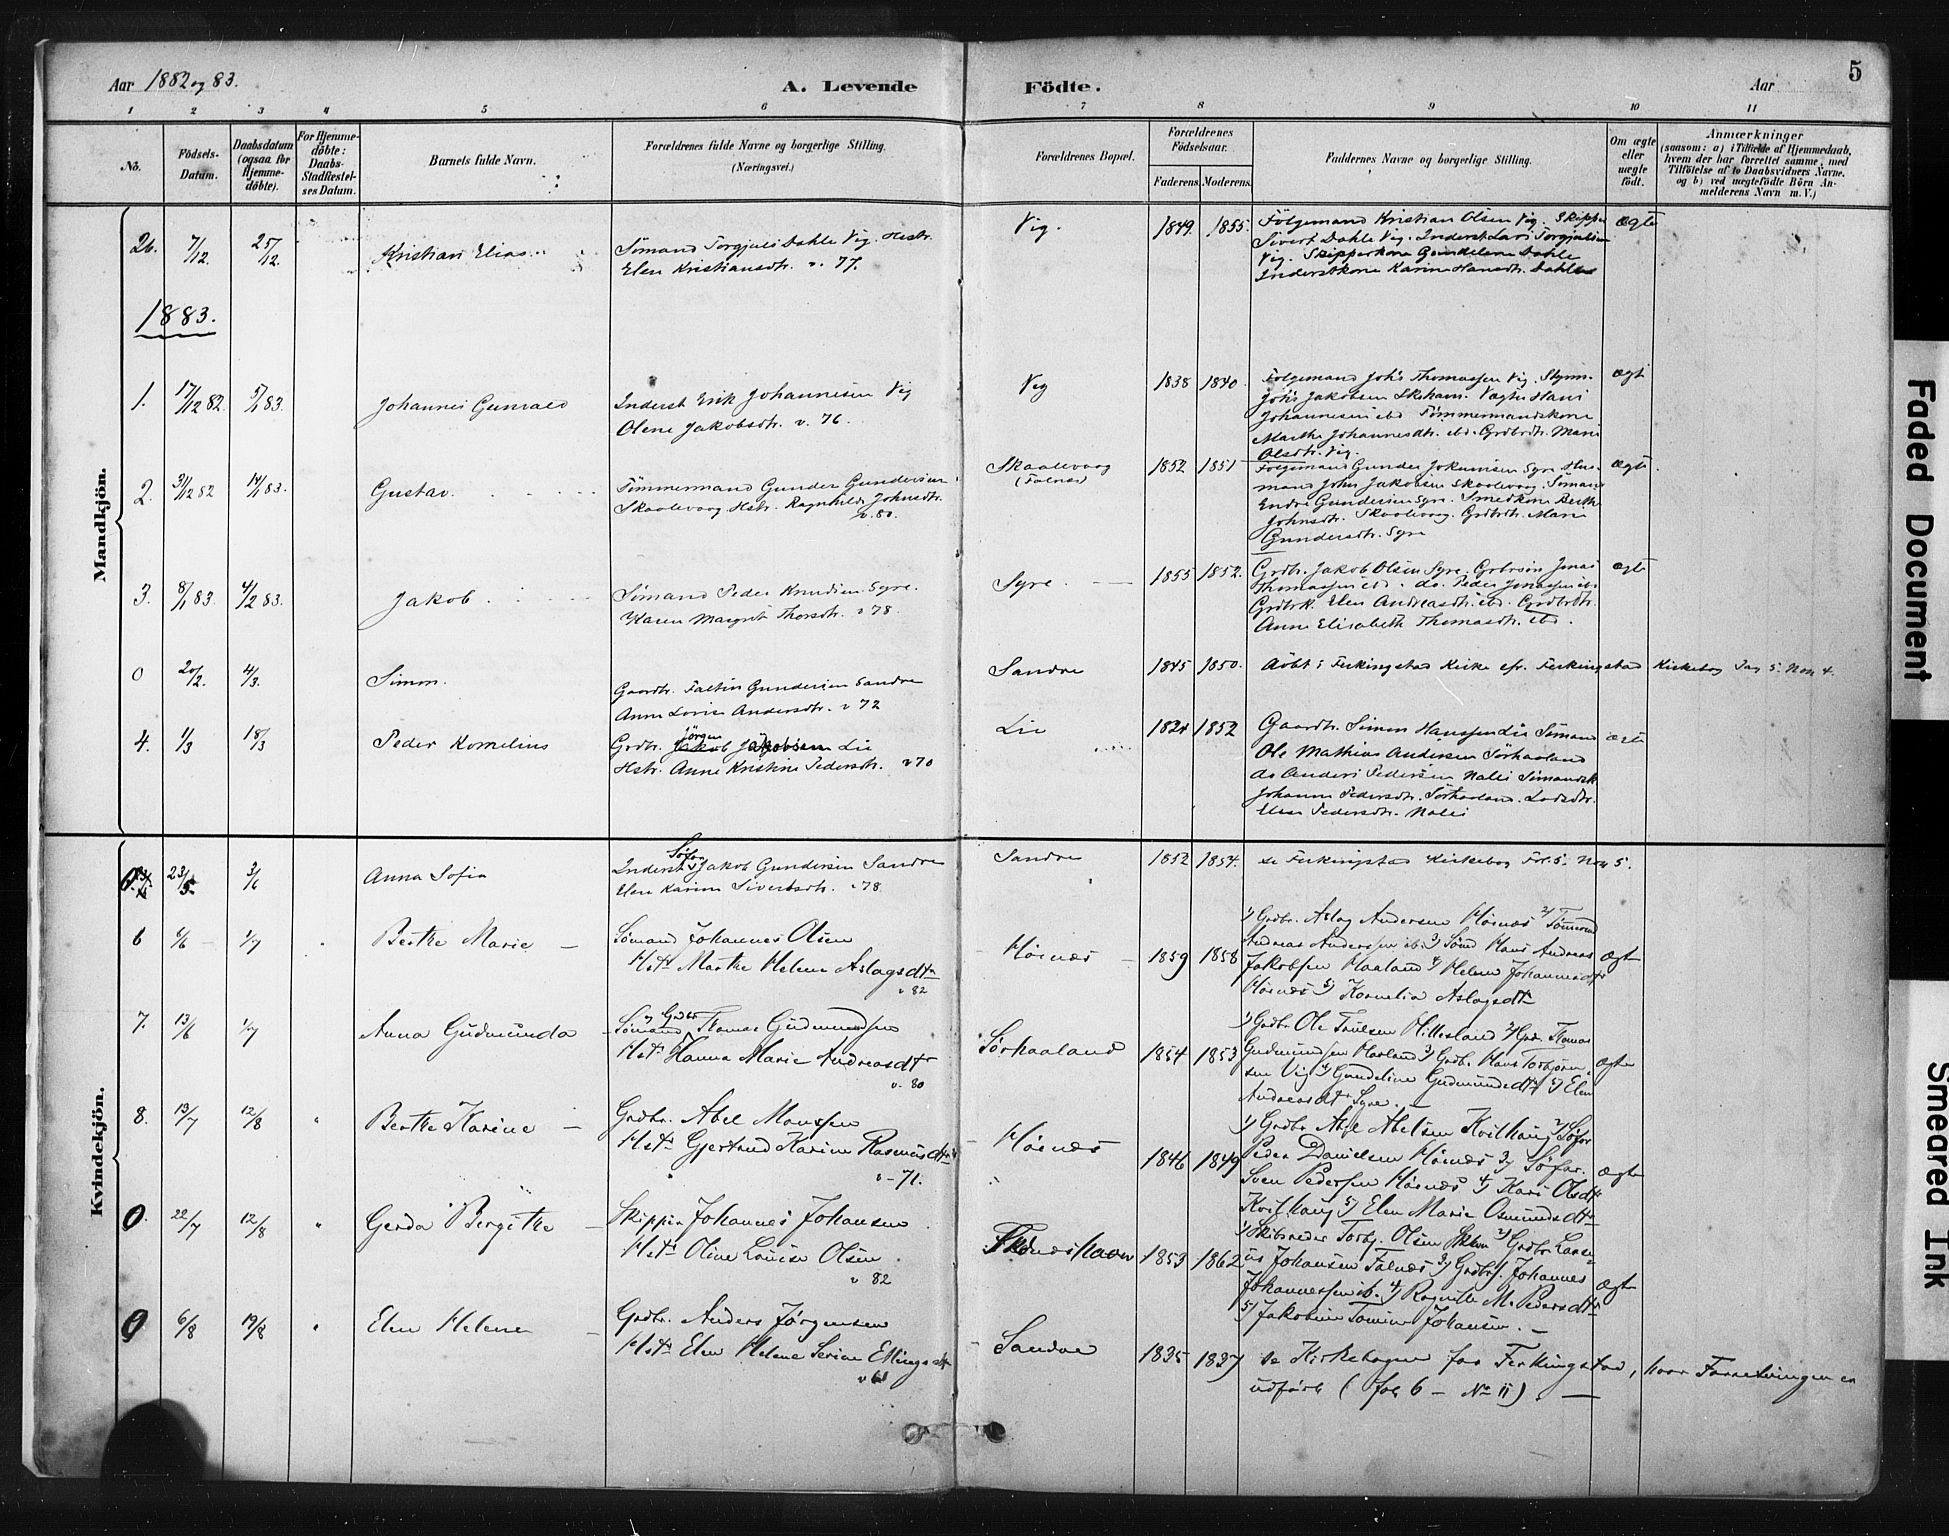 Aar 1882 og 83.
A. Levende
Födte.
Aar
5
1 2 3 4 5 6 7 8 9 10 11
No.
Födsels-
Datum.
Daabsdatum
(ogsaa for
Hjemme-
döbte).
For Hjemme-
döbte:
Daabs-
Stadfæstel-
ses Datum.
Barnets fulde Navn.
Forældrenes fulde Navne og borgerlige Stilling.
(Næringsvei.)
Forældrenes Bopæl.
Forældrenes
Födselsaar.
Faderens. Moderens.
Faddernes Navne og borgerlige Stilling.
Om ægte
eller
uægte
födt.
Anmærkninger
(saasom: a) i Tilfælde af Hjemmedaab,
hvem der har forrettet samme, med
Tilföielse af to Daabsvidners Navne,
og b) ved uægtefödte Börn An-
melderens Navn m. V.)
Mandkjön.
26. 7/12. 25/12. Kristian Elias
Sømand Torgjuls Dahle Vig. Hstr.
Elen Kristiansdtr. v. 77.
Vig. 1849. 1855.
Følgemand Kristian Olsen Vig. Skipper
Sivert Dahle Vig. Inderst Lars Torgjulsen
Vig. Skipperkone Gundelene Dahle
Inderstkone Karine Hansdtr. Dahle
Ægte
1883.
1. 17/12 82. 5/1 83. Johannes Gunvald
Inderst Erik Johannesen Vig
Olene Jakobsdtr. v. 76.
Vig 1838 1840.
Følgemand Johs Thomassen Vig.
Johs Jakobsen Skehavn. Vægter Hans
Johannesen ibd Tømmermandskone
Marthe Johannesdtr. ibd. Grdbrdtr. Marie
Olsdtr. Vig.
ægte
2. 31/12 82 14/1 83. Gustav.
Tømmermand Gunder Gundersen
Skaalevaag Hstr. Ragnhilde Johnsdtr.
v. 80.
Skaalevaag
(Falnæs)
1852 1851
Følgemand Gunder Jokumsen Syre Hus-
mand John Jakobsen Skaalevaag. Sømand
Endre Gundersen Syre. Smedkone Berthe
Johnsdtr. Skaalevaag. Grdbrdtr. Marie
Gundersdtr. Syre
ægte
3. 8/1 83. 4/2 83. Jakob
Sømand Peder Knudsen Syre.
Karen Margrete Thorsdtr. v 78.
Syre. 1855 1852.
Grdbr. Jakob Olsen Syre. Grbrsøn Jonas
Thomassen ibd. do. Peder Jonassen ibd.
Grdbrk. Elen Andreasdtr. ibd. Grdbrdtr.
Anne Elisabeth Thomasdtr. ibd.
ægte
0 20/2. 4/3. Simon.
Gaardbr. Faltin Gundersen Sandve
Anne Lovise Andersdtr. v 72
Sandve 1845 1850.
døbt i Ferkingstad Kirke cfr. Ferkingstad Kirkebog Pag 5. Nom 4.
4. 1/3 18/3 Peder Kornelius
Jörgen
Grdbr. Jakob Jakobsen Lie
Hstr. Anne Kristine Pedersdtr. v 70
Lie 1824 1852
Gaardbr. Simon Hanssen Lie Sømand
Ole Mathias Andersen Sørhaaland
do Anders Pedersen Nales Sømandsk.
Johanne Pedersdtr. Sørhaaland. Lodsdtr.
Elen Pedersdtr. Nales
ægte
Kvindekjön.
23/5 3/6 Anna Sofia
Søfar
Inderst Jakob Gundersen Sandve
Elen Karine Sivertsdtr. v 78
Sandve 1852 1854.
se Ferkingstad Kirkebog Fol. 5. Nom 5.
6 5/6 1/7 Berthe Marie
Sømand Johannes Olsen
Hst. Marthe Helene Aslagsdtr
v 82
Høines 1859 1858
1) Grdbr. Aslag Andersen Høines 2) Tømmd
Andreas Anderssen ib. 3) Sømd Hans Andreas
Jakobsen Haaland 4) Helene Johannesdtr
Høines 5) Kornelia Aslagsdtr
ægte
7. 13/6 1/7 Anna Gudmunda
og Grdbr
Sømand Thomas Gudmundsen
Hst. Hanna Marie Andreasdtr
v. 80
Sørhaaland 1854 1853
1) Grdbr Ole Truelsen Hillesland 2) Grdr. Thomas
Gudmundsen Haaland 3) Grdbr. Hans Torbjørn-
sen Vig 4) Gundeline Gudmundsdtr 5) Elen
Andreasdtr Syre.
ægte
8. 13/7 12/8 " Berthe Karine
Grdbr. Abel Monssen
Hst. Gjertrud Karine Rasmusdtr
v - 71.
Høines 1846 1849
1) Grdbr Abel Abelsen Kvilhaug 2) Søfar
Peder Danielsen Høines 3) Søfar.
Sven Pedersen Høines 4) Kari Olsdtr
Kvilhaug 5) Elen Marie Osmundsdtr
ægte
0. 22/7 12/8 " Gerda Bergitte
Skipper Johannes Johansen
Hst. Oline Louise Olsen
v 82
1853 1862
1) Skibsreder Torbj. Olsen 2) Grdbr Lars
Johansen Falnæs 3) Grdbrs. Johannes
Johannessen ib. 4) Ragnille M. Pedersdtr
5) Jakobine Tomine Johansen.
ægte
0 6/8 19/8 " Elen Helene
Grdbr. Anders Jørgensen
Hst. Elen Helene Serine Ellingsdtr
Sandve 1835 1837
se Kirkebogen for Ferkingstad, hvor Forretningen er
udført (fol 6 - No 11).
Faded Document
Smeared Ink